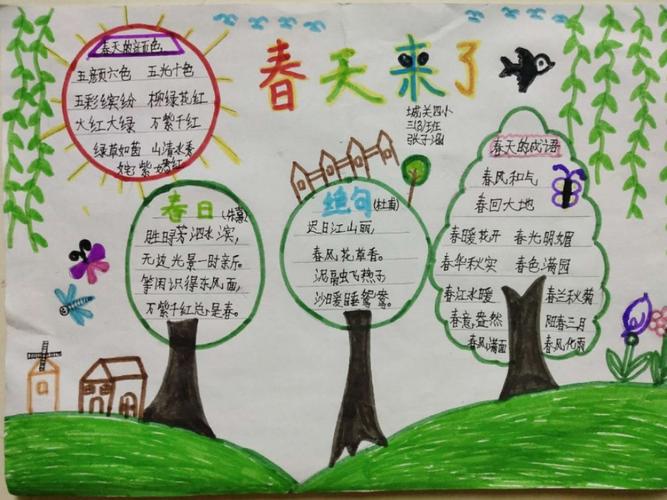 春天来了
城关四小
三(8)班
张子涵
春天的颜色
五颜六色 五光十色
五彩缤纷 柳绿花红
大红大绿 万紫千红
绿草如茵 山清水秀
姹紫嫣红
春日(朱熹)
胜日寻芳泗水滨,
无边光景一时新。
等闲识得东风面,
万紫千红总是春。
绝句(杜甫)
迟日江山丽,
春风花草香。
泥融飞燕子
沙暖睡鸳鸯。
春天的成语
春风和气
春回大地
春暖花开 春光明媚
春华秋实 春色满园
春江水暖 春兰秋菊
春意盎然 阳春三月
春风满面 春风化雨